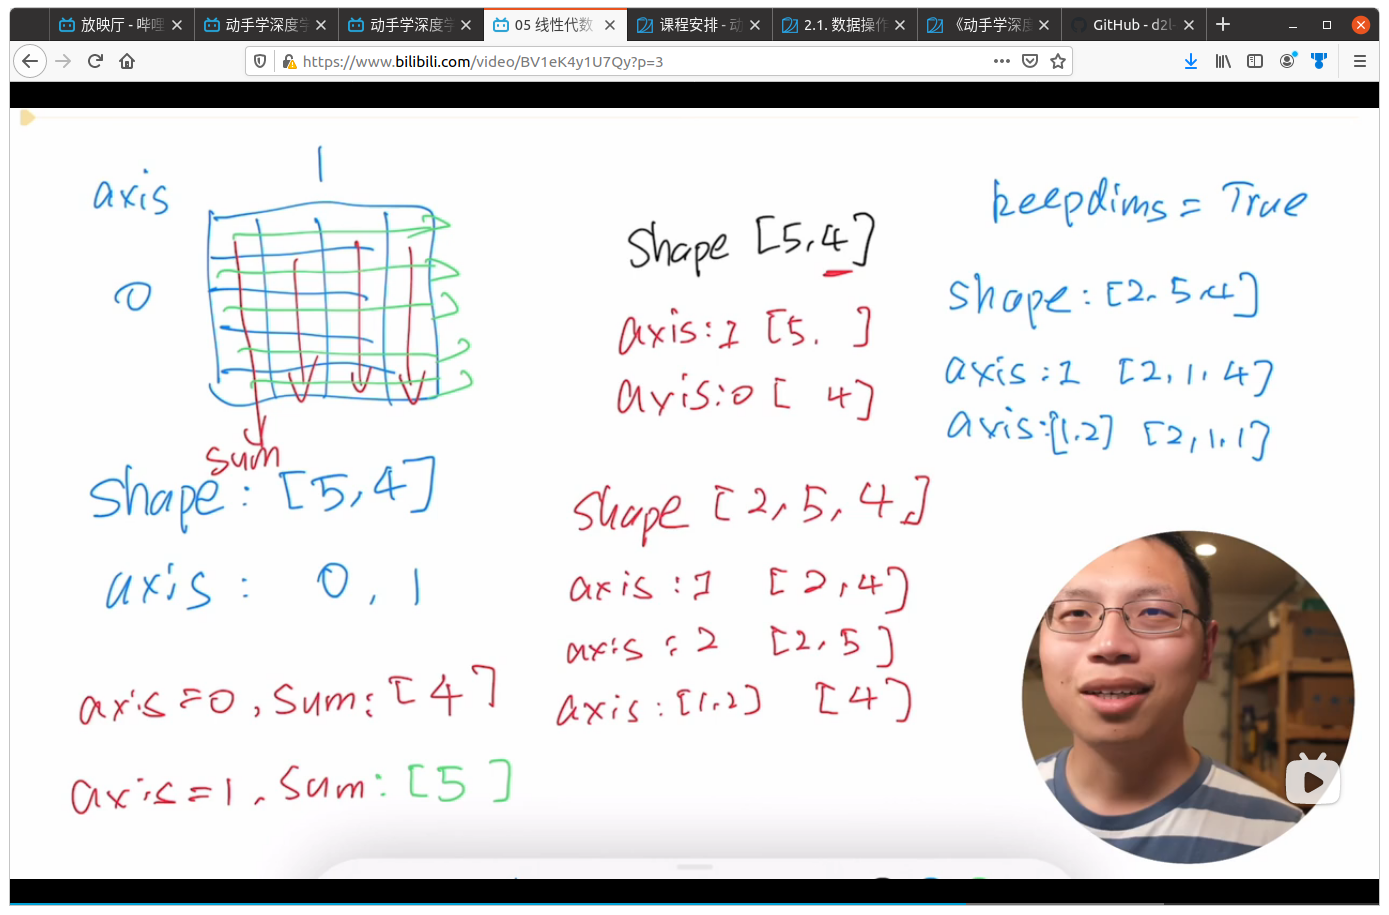 放映厅 - 哔哩
动手学深度学
动手学深度学
05 线性代数
课程安排 - 动
2.1. 数据操作
《动手学深度
GitHub - d2l-
https://www.bilibili.com/video/BV1eK4y1U7Qy?p=3
1
axis
0
sum
shape: [5,4]
axis: 0,1
axis=0, sum: [4]
axis=1, sum: [5]
shape [5,4]
axis:1 [5, ]
axis:0 [ 4]
shape [2,5,4]
axis:1 [2,4]
axis:2 [2,5]
axis:[1,2] [4]
keepdims=True
shape:[2,5,4]
axis:1 [2,1,4]
axis:[1,2] [2,1,1]